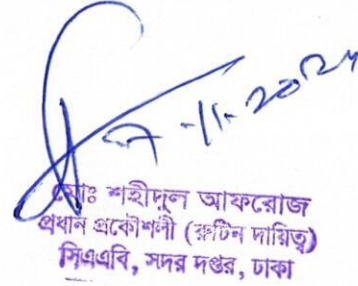 ৭-11-2024
মোঃ শহীদুল আফরোজ
প্রধান প্রকৌশলী (রুটিন দায়িত্ব)
সিএএবি, সদর দপ্তর, ঢাকা